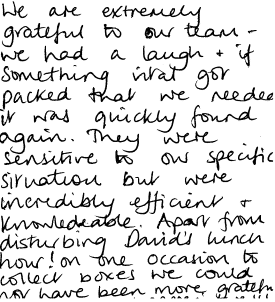 We are extremely
grateful to our team -
we had a laugh + if
something vital got
packed that we needed
it was quickly found
again. They were
sensitive to our specific
situation but were
incredibly efficient +
knowledeable. Apart from
disturbing David's lunch
hour! on one occasion to
collect boxes we could
not have been more grateful